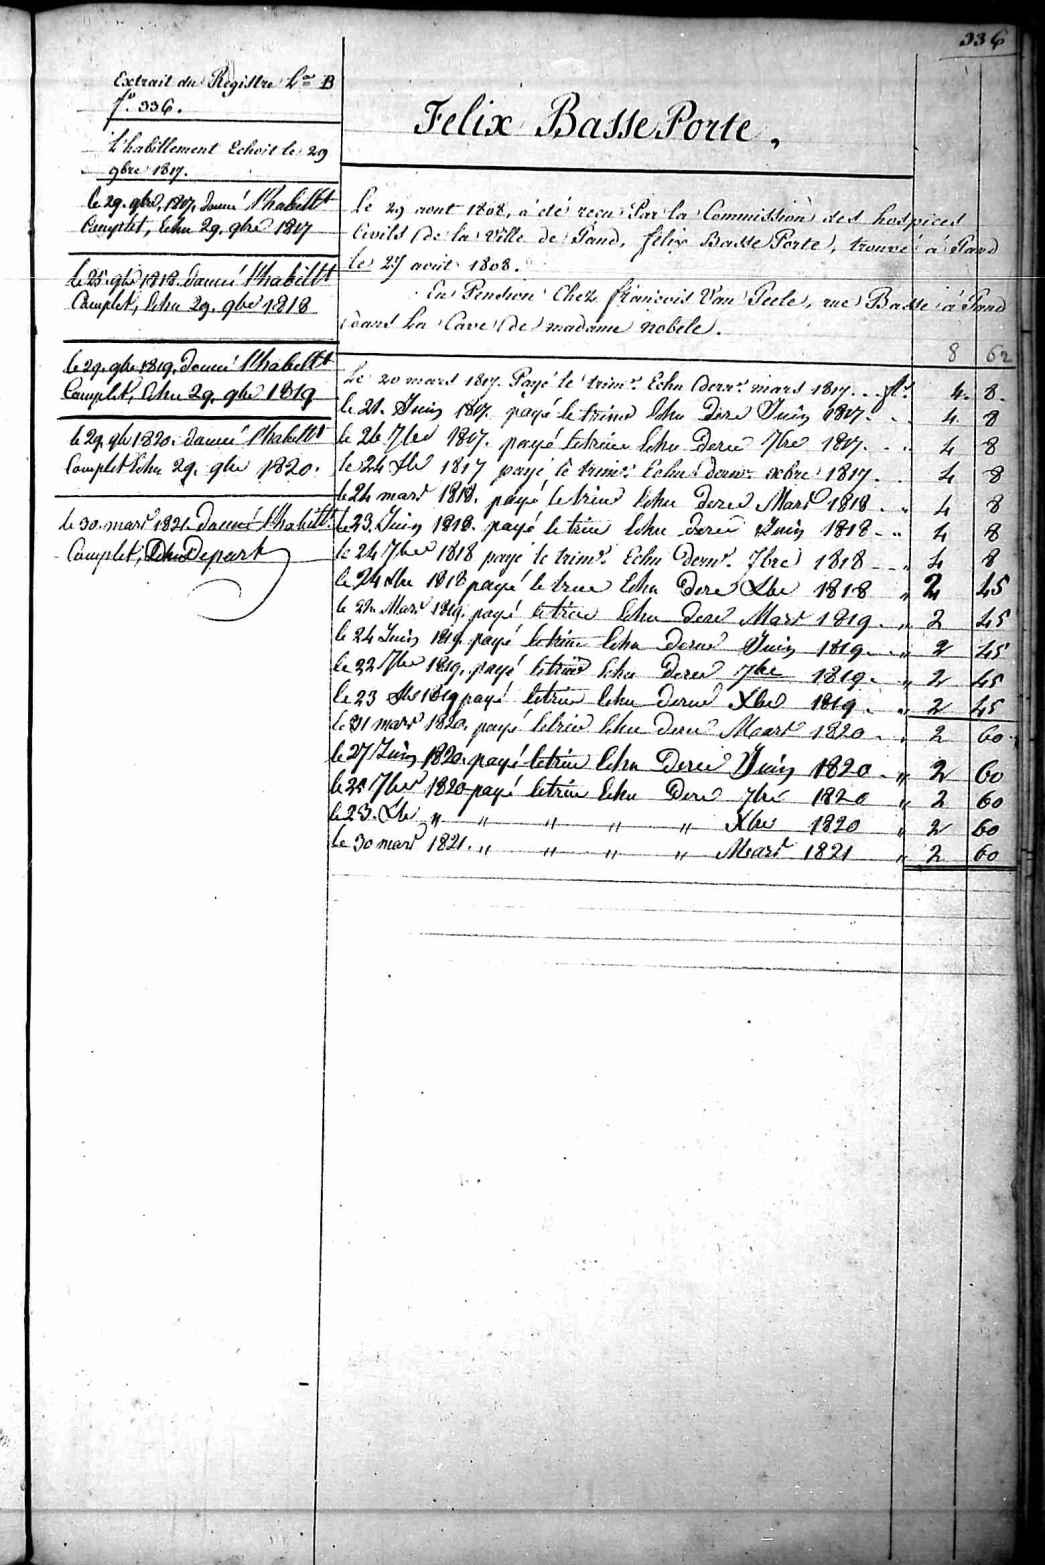 336
Extrait du Registre Lre B
f° 336.
L'habillement Echoit le 29
9bre 1817.
le 29. 9bre, 1817, donné l'habillt
Complet, Echu 29, 9bre 1817
le 25. 9bre 1818. donné l'habillt
Complet, Echu 29. 9bre 1818
le 29. 9bre 1819, donné l'habillt
Complet, Echu 29, 9bre 1819
le 29. 9bre 1820. donné l'habillt
Complet Echu 29. 9bre 1820.
le 30. mars 1821. donné l'habillt
Complet, Depart
Felix Basse Porte.
Le 29 aout 1808, a été reçu Par la Commission des hospices
Civils de la Ville de Gand, felix Basse Porte, trouvé à Gand
le 27 août 1808.
En Pension Chez françois Van Peele, rue Basse à Gand
dans La Cave de madame nobele.
8 62
Le 20 mars 1817. Payé le trimre Echu derr. mars 1817... fl. 4. 8.
le 21. Juin 1817. payé le trime Echu dere Juin 1817. 4 8
le 26 7bre 1817. payé le trime Echu dere 7bre 1817. 4 8
le 24 Xbre 1817 payé le trimre Echu derr. xbre 1817. 4 8
le 24 mars 1818. payé le trime Echu dere Mars 1818 4 8
le 23 Juin 1818. payé le trime Echu dere Juin 1818 4 8
le 24 7bre 1818 payé le trimre Echu derr. 7bre 1818 4 8
le 24 Xbre 1818 payé le trime Echu dere Xbre 1818 " 2 45
le Mars 1819. payé le trime Echu dere Mars 1819. " 2 45
le 24 Juin 1819. payé le trime Echu dere Juin 1819. " 2 45
le 22 7bre 1819. payé le trime Echu dere 7bre 1819. " 2 45
le 23 Xbre 1819 payé le trime Echu dere Xbre 1819. " 2 45
le 21 mars 1820. payé le trime Echu dere Mars 1820 " 2 60
le 27 Juin 1820. payé le trime Echu dere Juin 1820 " 2 60
le 25 7bre 1820 payé le trime Echu dere 7bre 1820 " 2 60
le 23. Xbre " " " " " Xbre 1820 " 2 60
le 30 mars 1821. " " " " Mars 1821 " 2 60